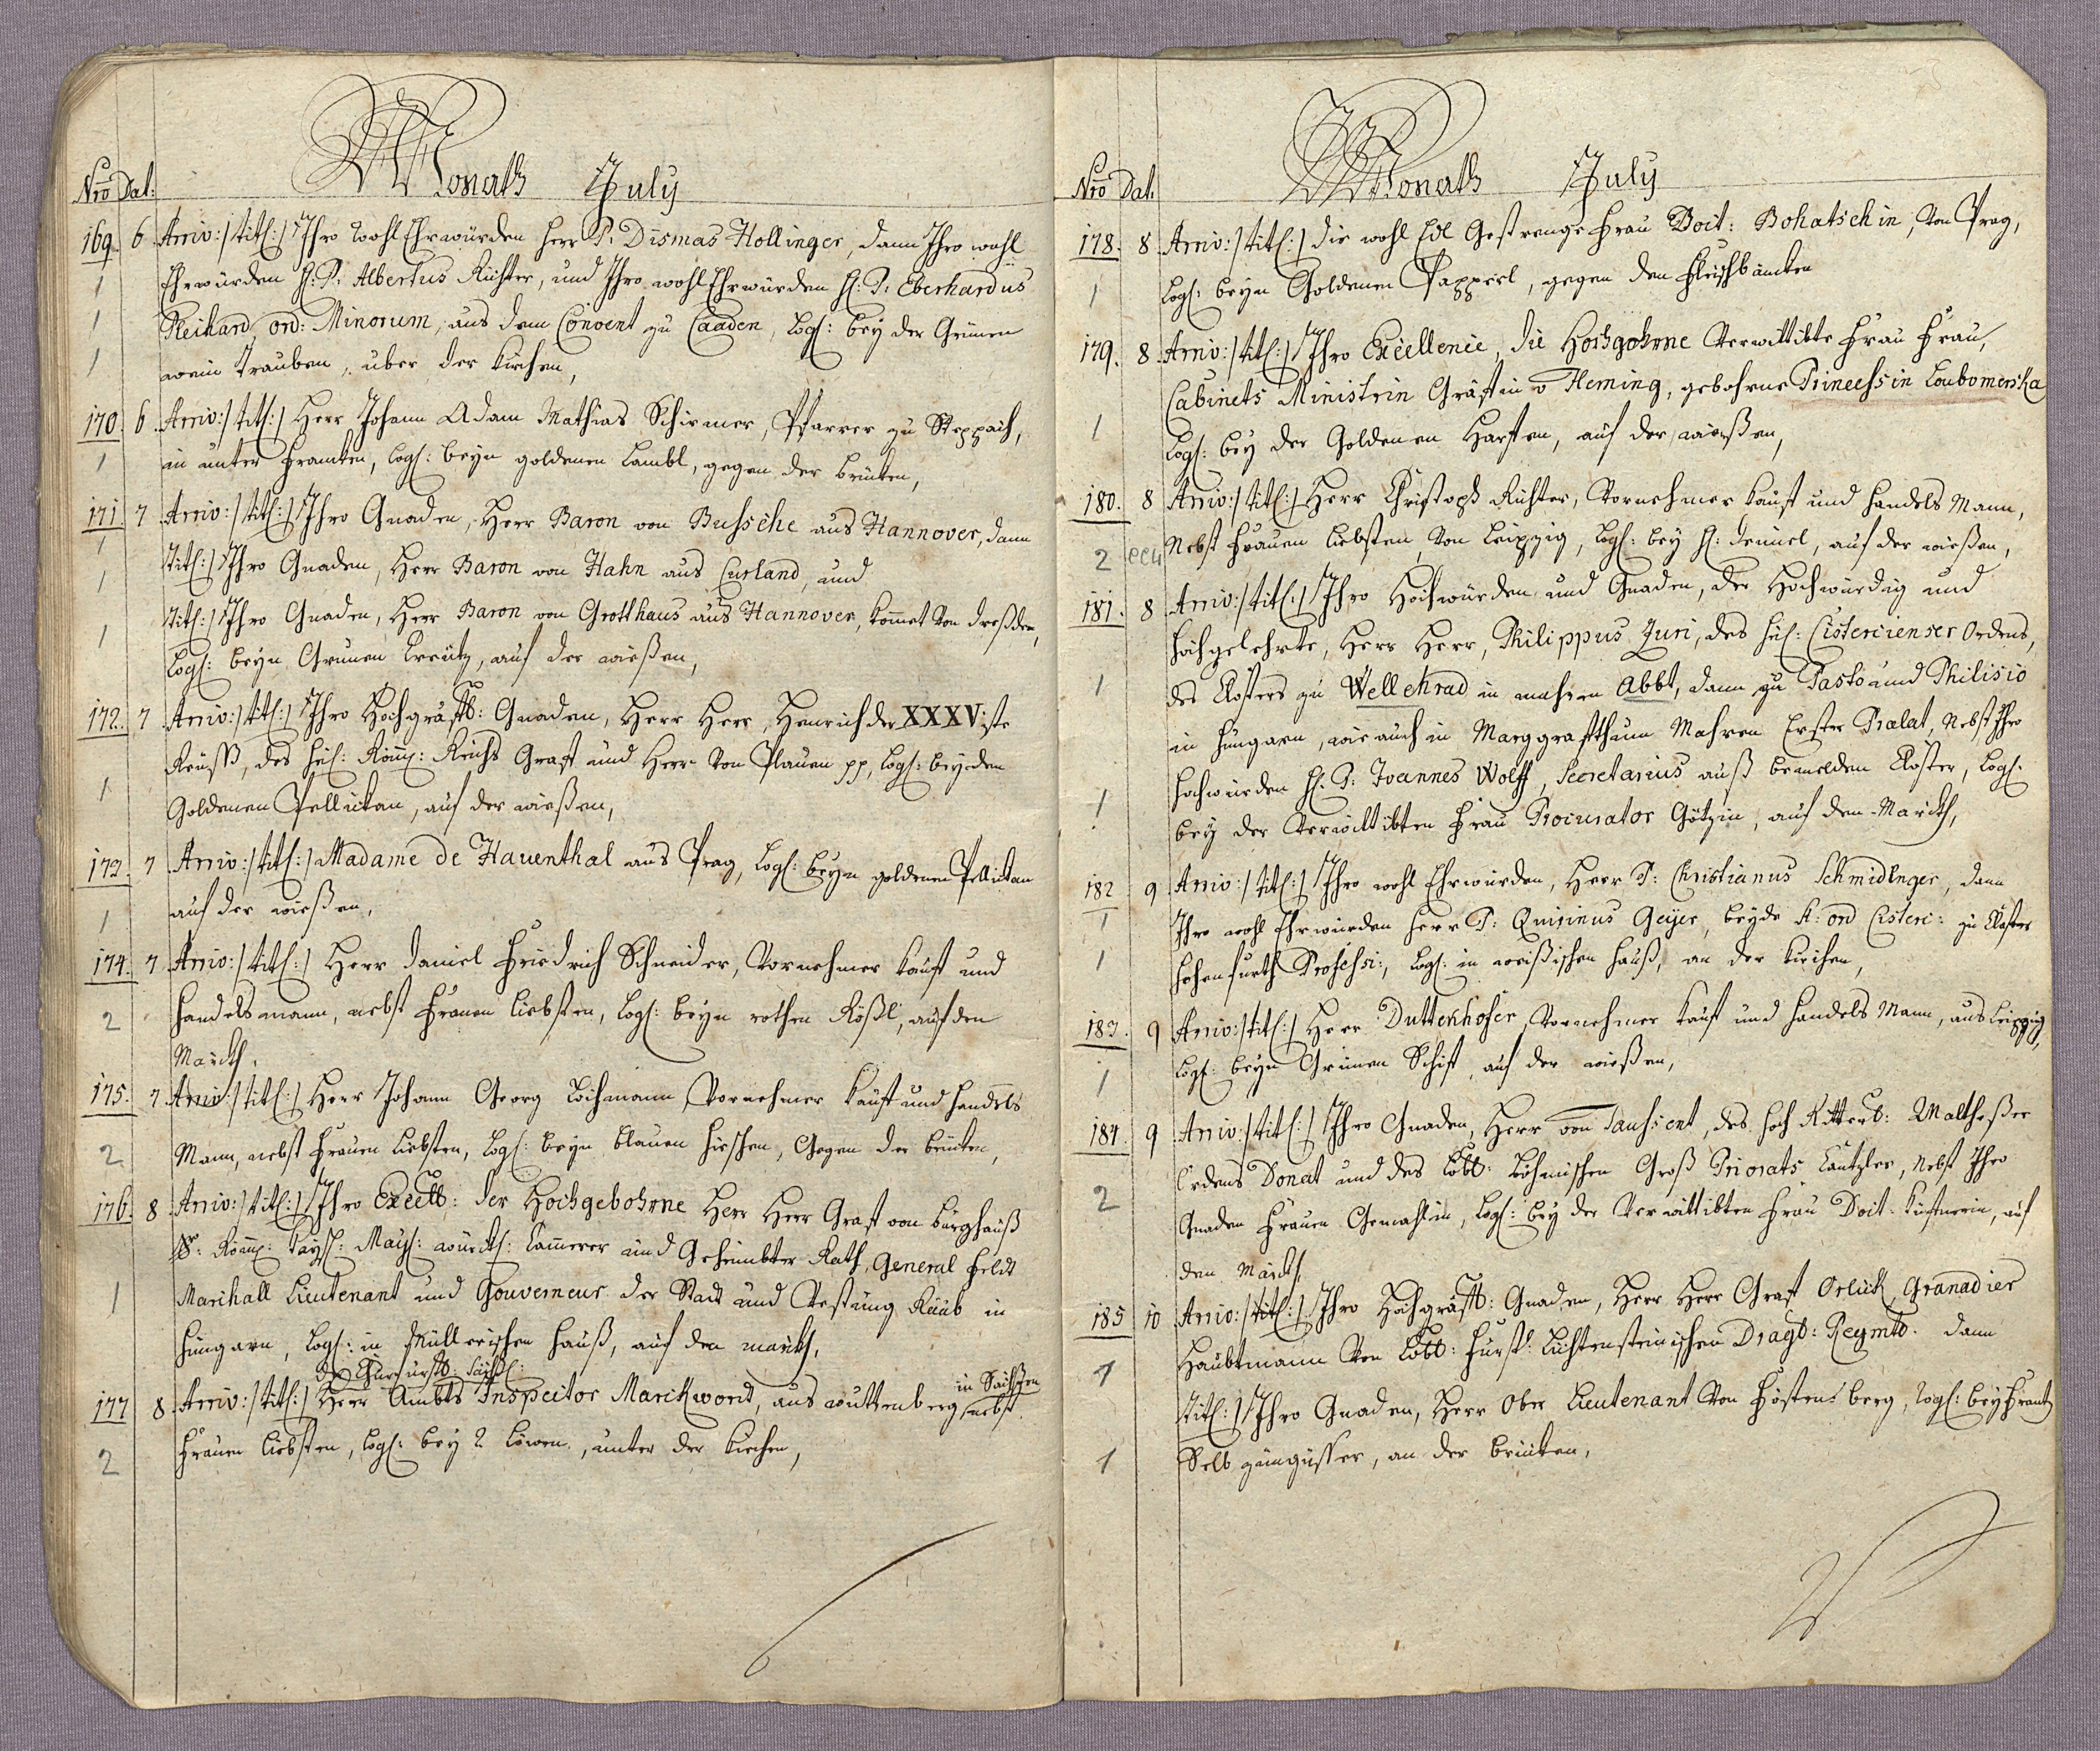 Monath July
Nro Dat:
169. 6 Arriv: /:titl:/ Ihro Wohl Ehrwürden Herr P. Dismas Hollinger, dann Ihro wohl
1 Ehrwürden H: P: Albertus Richter, und Ihro wohl Ehrwürden H: P: Eberhardus
1 Pleikard, ord: Minorum, aus dem Convent zu Caaden, Logl: bey der Grünen
1 wein Trauben, über der Kirchen,
170. 6. Arriv: /:titl:/ Herr Johann Adam Mathias Schirmer, Pfarrer zu Steppach,
1 in unter Francken, Logl: beyn goldenen Lambl, gegen der brücken,
171 7 Arriv: /:titl:/ Ihro Gnaden, Herr Baron von Bussche aus Hannover, dann
1 titl:/ Ihro Gnaden, Herr Baron von Hahn aus Curland, und
1 titl:/ Ihro Gnaden, Herr Baron von Grotthaus aus Hannover, kommet von Dreßden,
1 Logl: beyn Grünen Creutz, auf der wießen,
172. 7 Arriv: /:titl:/ Ihro Hochgräfl: Gnaden, Herr Herr, Henrich der XXXV:ste
Reuß, des Heil: Röm: Reichs Graff und Herr von Plauen pp, Logl: bey den
1 Goldenen Pellican, auf der wießen,
173. 7 Arriv: /:titl:/ Madame de Hauenthal aus Prag, Logl: beyn goldenen Pellican
1 auf der wießen,
174. 7 Arriv: /:titl:/ Herr Daniel Friedrich Schneider, Vornehmer Kauff und
2 Handelsmann, nebst Frauen Liebsten, Logl: beyn rothen Rößl, auf den
Marckh,
175. 7 Arriv: /:titl:/ Herr Johann Georg Lochmann, Vornehmer Kauff und Handels
2 Mann, nebst Frauen Liebsten, Logl: beyn blauen Hirschen, Gegen der brücken,
176. 8 Arriv: /:titl:/ Ihro Excell: der Hochgebohrne Herr Herr Graff von Burghauß
Sr: Röm: Kaysl: Mayl: würckl: Cammerer und Geheimbter Rath, General Feldt
1 Marchall Lieutenant und Gouverneur der Stadt und Vestung Raab in
Hungarn, Logl: in Müllerischen Hauß, auf den marckh,
der Churfürstl: Sächßl:
177 8 Arriv: /:titl:/ Herr Ambts Inspector Marckwordt, aus wuttenberg in Sachßen nebst
2 Frauen Liebsten, Logl: bey 2 Löwen, unter der Kirchen,
Monath July
Nro Dat:
178. 8. Arriv: /:titl:/ die wohl Edl Gestrenge Frau Doct: Bohatschin, von Prag,
1 Logl: beyn Goldenen Papperl, gegen den Fleischbäncken
179. 8. Arriv: /:titl:/ Ihro Excellence, die Hochgebohrne Verwittibte Frau Frau,
Cabinets Ministrin Gräffin v Fleming, gebohrne Princessin Loubomerska
1 Logl: bey der Goldenen Harffen, auf der wießen,
180. 8 Arriv: /:titl:/ Herr Christoph Richter, Vornehmer Kauff und Handels Mann,
2 Nebst Frauen Liebsten, von Leipzig, Logl: bey H: Deiml, auf der wießen,
181. 8 Arriv: /:titl:/ Ihro Hochwürden und Gnaden, der Hochwürdig und
Hochgelehrte, Herr Herr, Philippus Zuri, des Heil: Cistercienser Ordens,
1 des Closters zu Wellehrad in mahren Abbt, dann zu Pasto und Philisio
in Hungarn, wie auch in Marggraffthum Mahren Erster Prælat, Nebst Ihro
1 Hochwürden H: P: Joannes Wolff, Secretarius auß bemelden Closter, Logl:
bey der Verwittibten Frau Procurator Götzin, auf den Marckh,
182 9 Arriv: /:titl:/ Ihro wohl Ehrwürden, Herr P: Christianus Schmidlnger, dann
1 Ihro wohl Ehrwürden Herr P: Quirinus Geyer, beyde S: ord Cisterc: zu Closter
1 Hohenfurth Professi:, Logl: in weißischen Hauß, an der Kirchen,
183. 9 Arriv: /:titl:/ Herr Duttenhofer, Vornehmer Kauff und Handels Mann, aus Leipzig,
1 Logl: beyn Grünen Schiff, auf der wießen,
184. 9 Arriv: /:titl:/ Ihro Gnaden, Herr von Taussent, des Hoch Ritterl: Maltheßer
Ordens Donat und des Löbl: Böhmischen Groß Priorats Cantzler, Nebst Ihro
2 Gnaden Frauen Gemahlin, Logl: bey der Verwittibten Frau Doct: Kustnerin, auf
den Marckh,
185 10 Arriv: /:titl:/ Ihro Hochgräffl: Gnaden, Herr Herr Graff Orlick, Granadier
1 Haubtmann von Löbl: Fürstl: Lichtensteinischen Drago: Regmt: dann
titl:/ Ihro Gnaden, Herr Ober Lieutenant von berg, Logl: bey Frantz
1 Selb züngüsser, an der brücken,